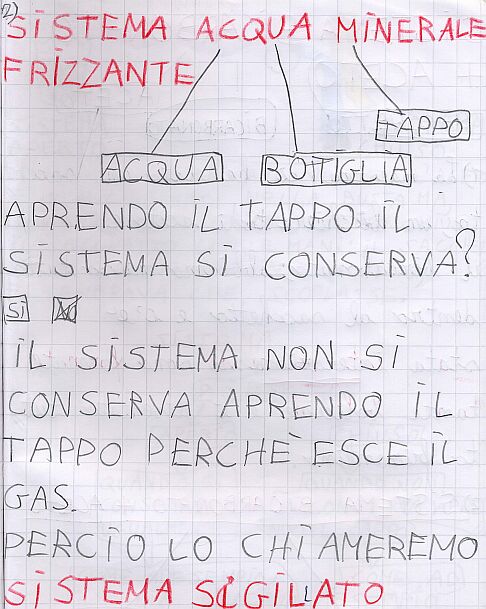 2)
SISTEMA ACQUA MINERALE
FRIZZANTE
TAPPO
ACQUA BOTTIGLIA
APRENDO IL TAPPO IL
SISTEMA SI CONSERVA?
SI NO
IL SISTEMA NON SI
CONSERVA APRENDO IL
TAPPO PERCHÈ ESCE IL
GAS.
PERCIO LO CHIAMEREMO
SISTEMA SIGILLATO